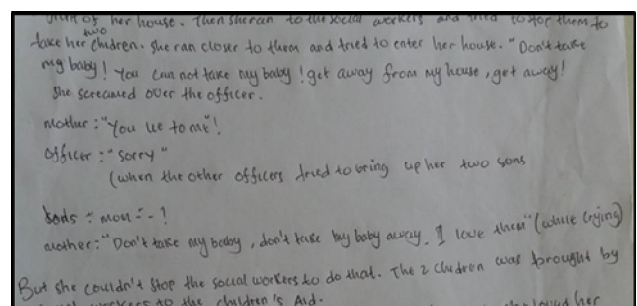 of her house. Then she ran to the social workers and tried to stop them to
take her two children. she ran closer to them and tried to enter her house. "Don't take
my baby! You can not take my baby! get away from my house, get away!
She screamed over the officer.
mother: "You lie to me"!
Officer: "Sorry"
(when the other officers tried to bring up her two sons
: mom - - !
mother: "Don't take my baby, don't take my baby away. I love them" (while crying)
But she couldn't stop the social workers to do that. The 2 children was brought by
workers to the children's Aid.
her